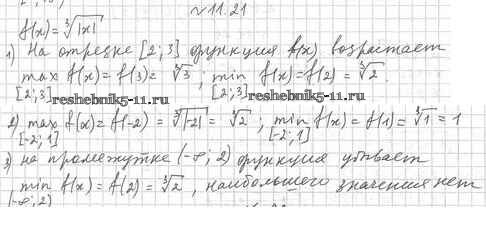 №11.21
f(x)=∛|x|
1) На отрезке [2;3] функция f(x) возрастает
max f(x) = f(3) = ∛3 ; min f(x) = f(2) = ∛2.
[2;3] [2;3]
reshebnik5-11.ru reshebnik5-11.ru
2) max f(x) = f(-2) = ∛|-2| = ∛2 ; min f(x) = f(1) = ∛1 = 1
[-2;1] [-2;1]
3) на промежутке (-∞; 2) функция убывает
min f(x) = f(2) = ∛2 , наибольшего значения нет
(-∞;2)